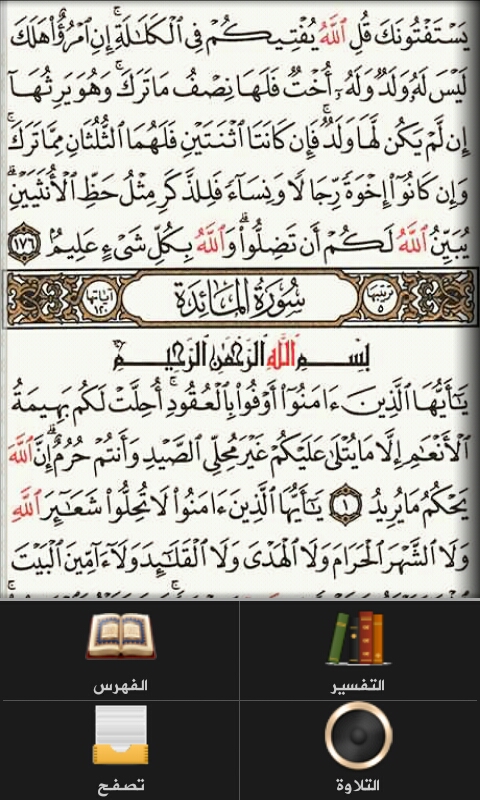 يَسْتَفْتُونَكَ قُلِ ٱللَّهُ يُفْتِيكُمْ فِى ٱلْكَلَٰلَةِ ۚ إِنِ ٱمْرُؤٌا۟ هَلَكَ
لَيْسَ لَهُۥ وَلَدٌ وَلَهُۥٓ أُخْتٌ فَلَهَا نِصْفُ مَا تَرَكَ ۚ وَهُوَ يَرِثُهَآ
إِن لَّمْ يَكُن لَّهَا وَلَدٌ ۚ فَإِن كَانَتَا ٱثْنَتَيْنِ فَلَهُمَا ٱلثُّلُثَانِ مِمَّا تَرَكَ ۚ
وَإِن كَانُوٓا۟ إِخْوَةً رِّجَالًا وَنِسَآءً فَلِلذَّكَرِ مِثْلُ حَظِّ ٱلْأُنثَيَيْنِ ۗ
يُبَيِّنُ ٱللَّهُ لَكُمْ أَن تَضِلُّوا۟ ۗ وَٱللَّهُ بِكُلِّ شَىْءٍ عَلِيمٌۢ ١٧٦
ترتيبها ٥ سُورَةُ المَائِدَةِ آياتها ١٢٠
بِسْمِ ٱللَّهِ ٱلرَّحْمَٰنِ ٱلرَّحِيمِ
يَٰٓأَيُّهَا ٱلَّذِينَ ءَامَنُوٓا۟ أَوْفُوا۟ بِٱلْعُقُودِ ۚ أُحِلَّتْ لَكُم بَهِيمَةُ
ٱلْأَنْعَٰمِ إِلَّا مَا يُتْلَىٰ عَلَيْكُمْ غَيْرَ مُحِلِّى ٱلصَّيْدِ وَأَنتُمْ حُرُمٌ ۗ إِنَّ ٱللَّهَ
يَحْكُمُ مَا يُرِيدُ ١ يَٰٓأَيُّهَا ٱلَّذِينَ ءَامَنُوا۟ لَا تُحِلُّوا۟ شَعَٰٓئِرَ ٱللَّهِ
وَلَا ٱلشَّهْرَ ٱلْحَرَامَ وَلَا ٱلْهَدْىَ وَلَا ٱلْقَلَٰٓئِدَ وَلَآ ءَآمِّينَ ٱلْبَيْتَ
الفهرس التفسير
تصفح التلاوة